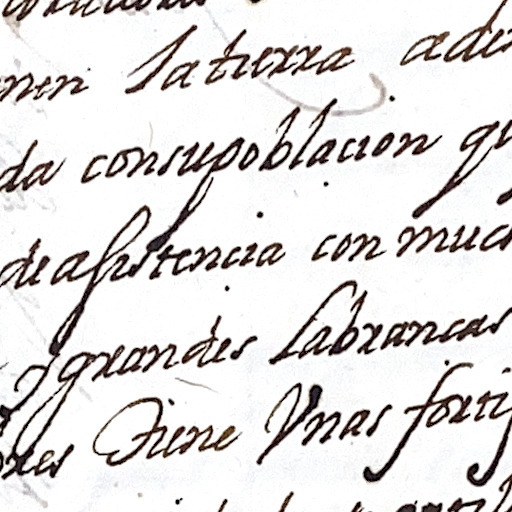 nen latierra ade
da consupoblacion qu
de assistencia con muc
y grandes labranças
res Tiene Vnas forti